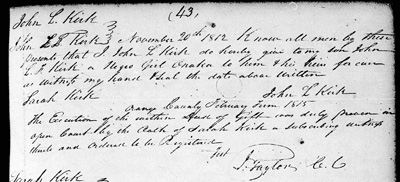 (43)
John L Kirk
November 20th 1812 Know all men by these
presents that I John L Kirk do hereby give to my son John
L. F Kirk a Negro Girl to him & his heirs for ever
as witness my hand & seal the date above written
Sarah Kirk John L Kirk
Orange County February Term 1815
The Execution of the within Deed of Gift was duly proven in
open Court by the Oath of Sarah Kirk a subscribing witness
thereto and ordered to be Registered
Test J. Taylor C. C
Sarah Kirk